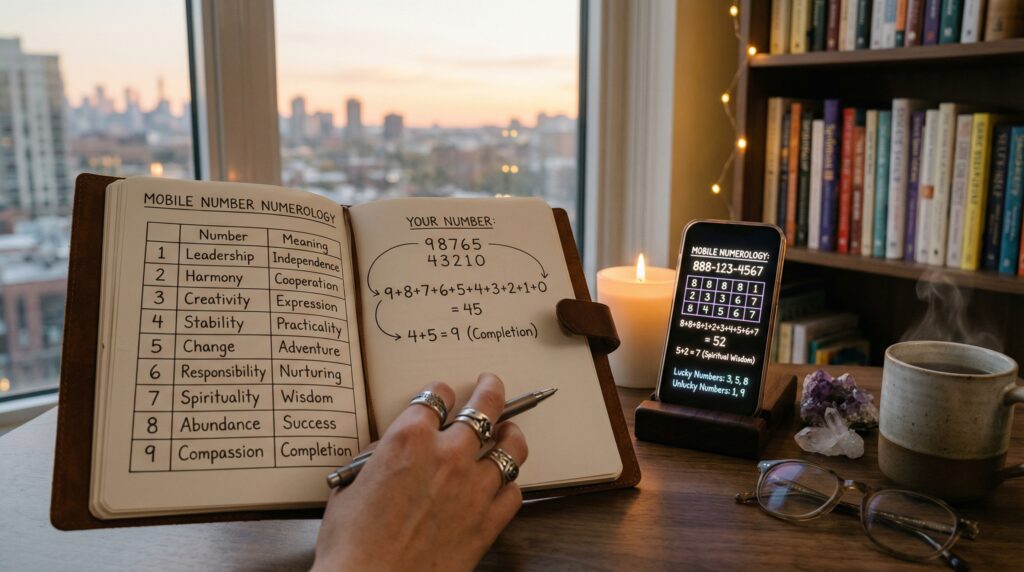 MOBILE NUMBER NUMEROLOGY
Number Meaning
1 Leadership Independence
2 Harmony Cooperation
3 Creativity Expression
4 Stability Practicality
5 Change Adventure
6 Responsibility Nurturing
7 Spirituality Wisdom
8 Abundance Success
9 Compassion Completion
YOUR NUMBER:
98765
43210
9+8+7+6+5+4+3+2+1+0
= 45
4+5=9 (Completion)
MOBILE NUMEROLOGY:
888-123-4567
8 8 8 8 1
2 3 3 6 7
4 5 6 5 7
8+8+8+1+2+3+4+5+6+7
= 52
5+2=7 (Spiritual Wisdom)
Lucky Numbers: 3, 5, 8
Unlucky Numbers: 1, 9